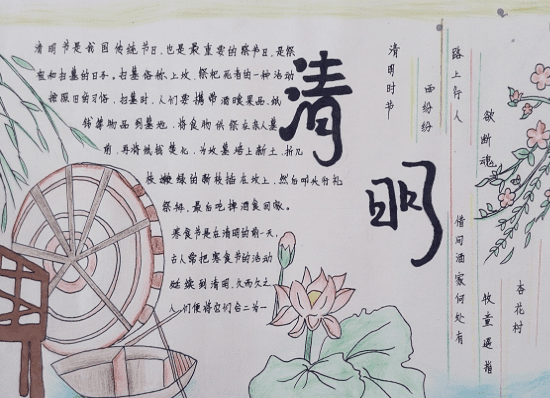 清明节是我国传统节日,也是最重要的祭节日,是祭
祖和扫墓的日子。扫墓俗称上坟,祭祀死者的一种活动
按照旧的习俗,扫墓时,人们要携带酒食果品、纸
钱等物品到墓地,将食物供祭在亲人墓
前,再将纸钱焚化,为坟墓培上新土,折几
枝嫩绿的新枝插在坟上,然后叩头行礼
祭拜,最后吃掉酒食回家。
寒食节是在清明的前一天,
古人常把寒食节的活动
延续到清明,久而久之
人们便将它们合二为一
清明
清明时节
雨纷纷
路上行人
欲断魂
借问酒家何处有
牧童遥指
杏花村